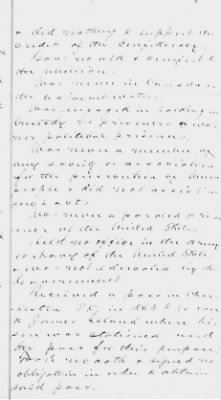 & did nothing to support the
credit of the Confederacy.
Gave no aid & comfort to
the rebellion.
Was never in Canada or
the adjacent waters.
Was never engaged in holding in
custody as prisoners of war
nor political prisoners.
Was never a member of
any society or association
for the persecution of Union
people & did not assist in
such acts.
Was never a paroled pris-
oner of the United States.
Held no office in the army
or navy of the United States
& was not educated by the
Government.
Received a pass in Char-
leston S.C. in 1864 to
to James Island where his
son was stationed used
the pass for this purpose.
Took no oath & signed no
obligation in order to obtain
said pass.